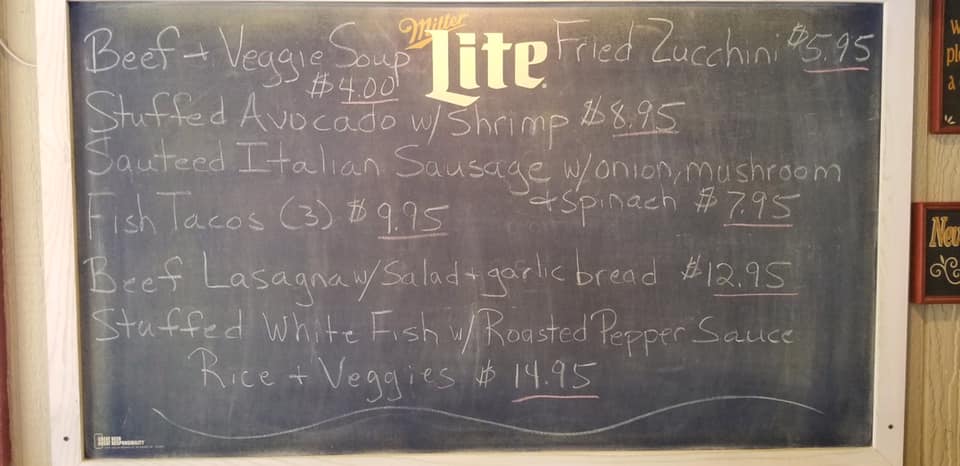 Beef + Veggie Soup Miller Lite Fried Zucchini $5.95
$4.00
Stuffed Avocado w/ Shrimp $8.95
Sauteed Italian Sausage w/onion, mushroom
Fish Tacos (3) $9.95 + Spinach $7.95
Beef Lasagna w/ Salad + garlic bread $12.95
Stuffed White Fish w/ Roasted Pepper Sauce
Rice + Veggies $14.95